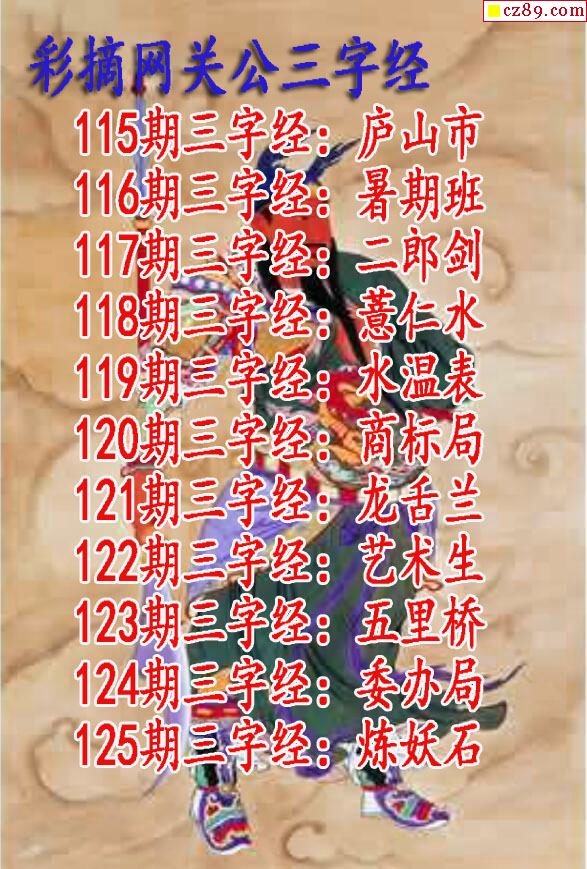 cz89.com
彩摘网关公三字经
115期三字经：庐山市
116期三字经：暑期班
117期三字经：二郎剑
118期三字经：薏仁水
119期三字经：水温表
120期三字经：商标局
121期三字经：龙舌兰
122期三字经：艺术生
123期三字经：五里桥
124期三字经：委办局
125期三字经：炼妖石